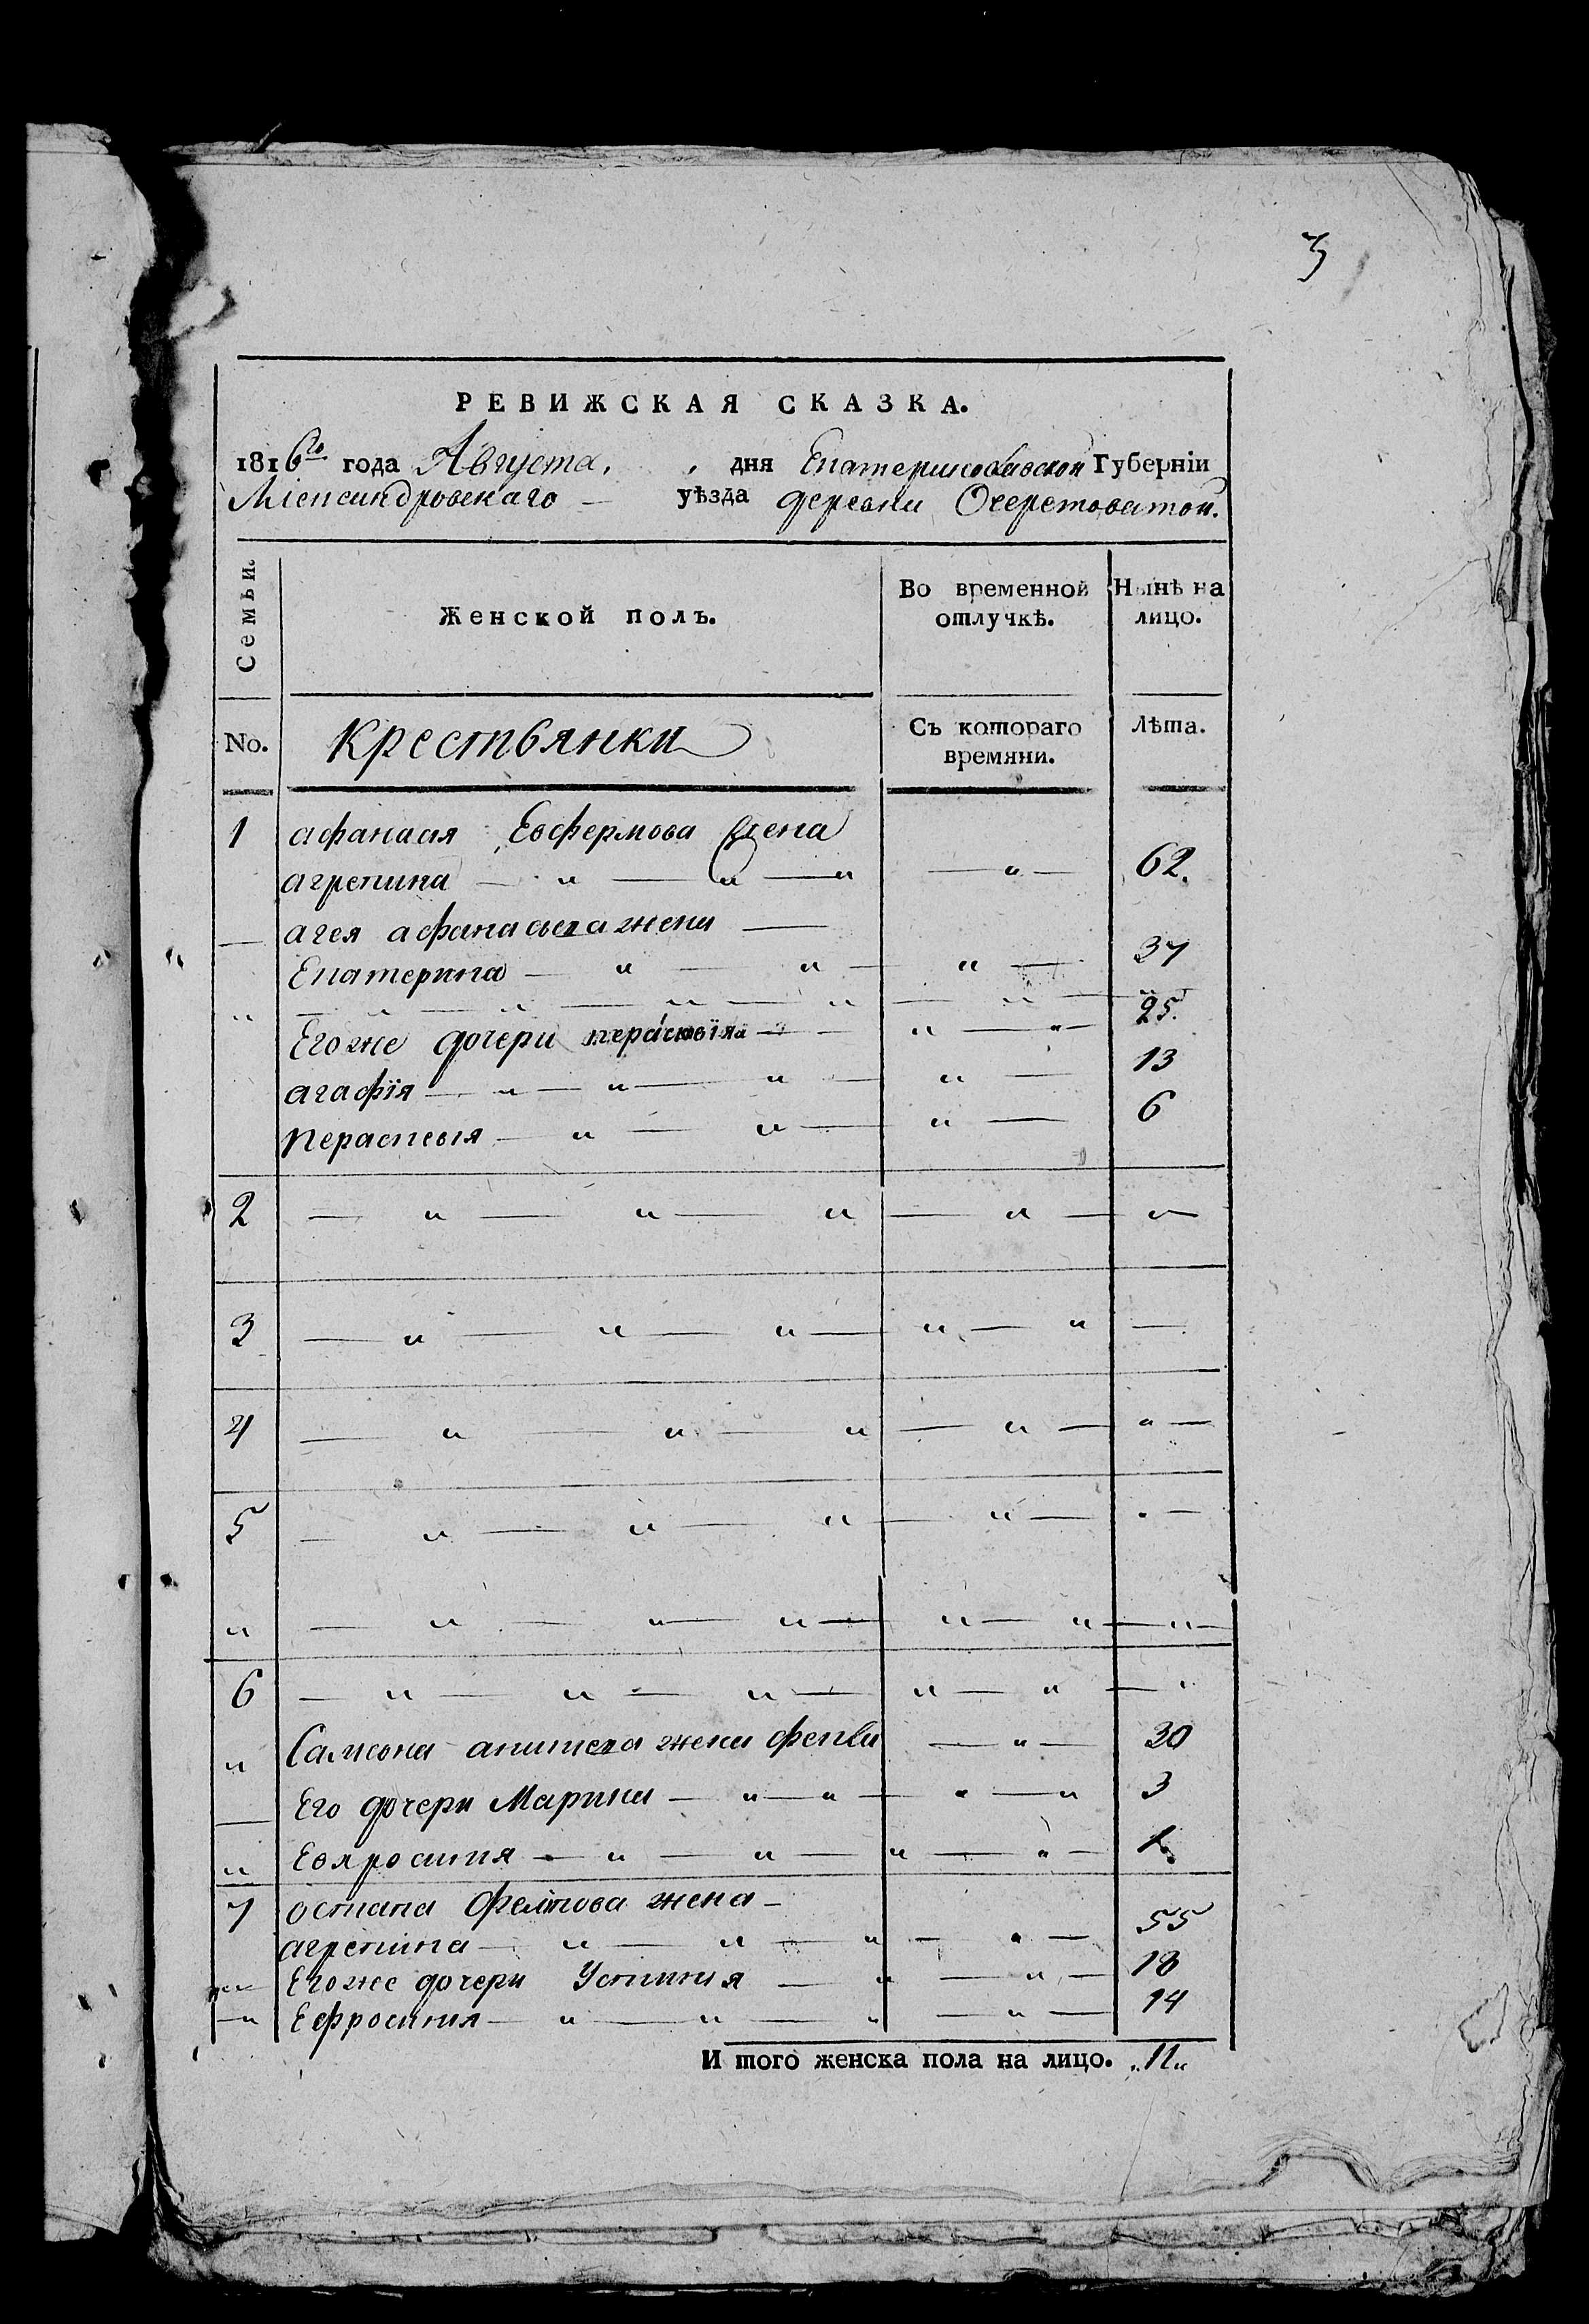 3
РЕВИЖСКАЯ СКАЗКА.
1816го года Августа, дня Екатеринославской Губернїи
Александровскаго — уѣзда деревни Очеретоватой.
Семьи. Женской полъ. Во временной отлучкѣ. Нынѣ на лицо.
No. Крестьянки Съ котораго времяни. Лѣта.
1 афанасия Евфермова жена
агрепина — " — " — " — " — 62.
— агея афанасьева жена —
Екатерина — " — " — " — 37
" — " — " — " — " — " — 25.
Егоже дочери перасковїя — " — " —
агафїя — " — " — " — " — 13
пераскевия — " — " — " — 6
2 — " — " — " — " — " —
3 — " — " — " — " — " —
4 — " — " — " — " — " —
5 — " — " — " — " — " —
" — " — " — " — " — " — " —
6 — " — " — " — " — " — "
" Самсона жена — " — 30
— Его дочери Марина — " — " — " — " 3
" Евяросиния — " — " — " — " —
7 остапа жена —
агрепина — " — " — " — " — 55
" Егоже дочери Устиния — " — " — 18
— " Ефросиния — " — " — " — " — 14
И того женска пола на лицо. „11„